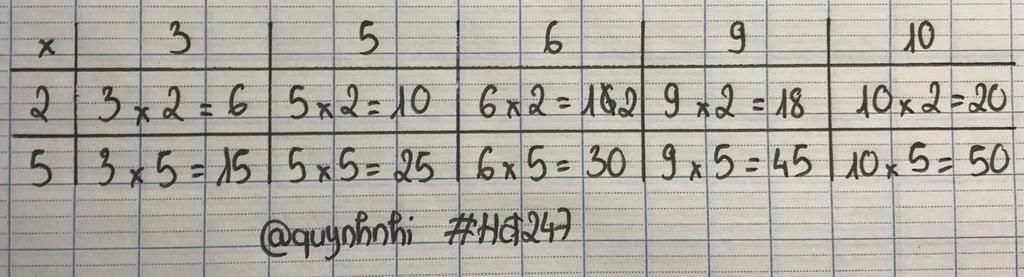 x 3 5 6 9 10
2 3 x 2 = 6 5 x 2 = 10 6 x 2 = 12 9 x 2 = 18 10 x 2 = 20
5 3 x 5 = 15 5 x 5 = 25 6 x 5 = 30 9 x 5 = 45 10 x 5 = 50
@quynhnhi #Hđ247